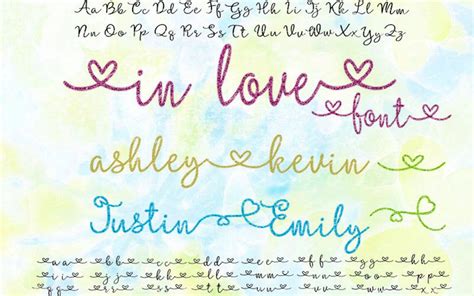 Aa Bb Cc Dd Ee Ff Gg Hh Ii Jj Kk Ll Mm
Nn Oo Pp Qq Rr Ss Tt Uu Vv Ww Xx Yy Zz
in love
font
ashley kevin
Justin Emily
aa bb cc dd ee ff gg hh
ii jj kk ll mm nn oo pp
qq rr ss tt uu vv ww xx